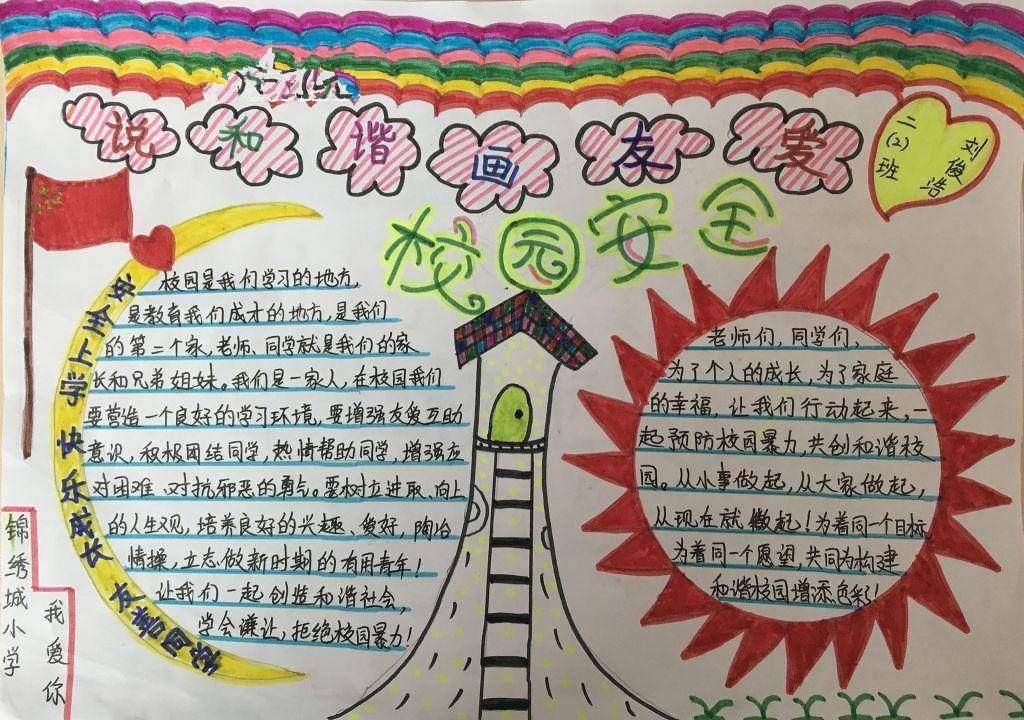 说和谐画友爱
二(2)班
刘俊浩
校园安全
安全上学 快乐成长 友善同学
校园是我们学习的地方,
是教育我们成才的地方,是我们
的第二个家,老师、同学就是我们的家
长和兄弟姐妹。我们是一家人,在校园我们
要营造一个良好的学习环境,要增强友爱互助
意识,积极团结同学,热情帮助同学,增强应
对困难、对抗邪恶的勇气。要树立进取、向上
的人生观,培养良好的兴趣、爱好,陶冶
情操,立志做新时期的有用青年!
让我们一起创造和谐社会,
学会谦让,拒绝校园暴力!
老师们,同学们,
为了个人的成长,为了家庭
的幸福,让我们行动起来,一
起预防校园暴力,共创和谐校
园。从小事做起,从大家做起,
从现在就做起!为着同一个目标
为着同一个愿望,共同为构建
和谐校园增添色彩!
锦绣城小学
我爱你